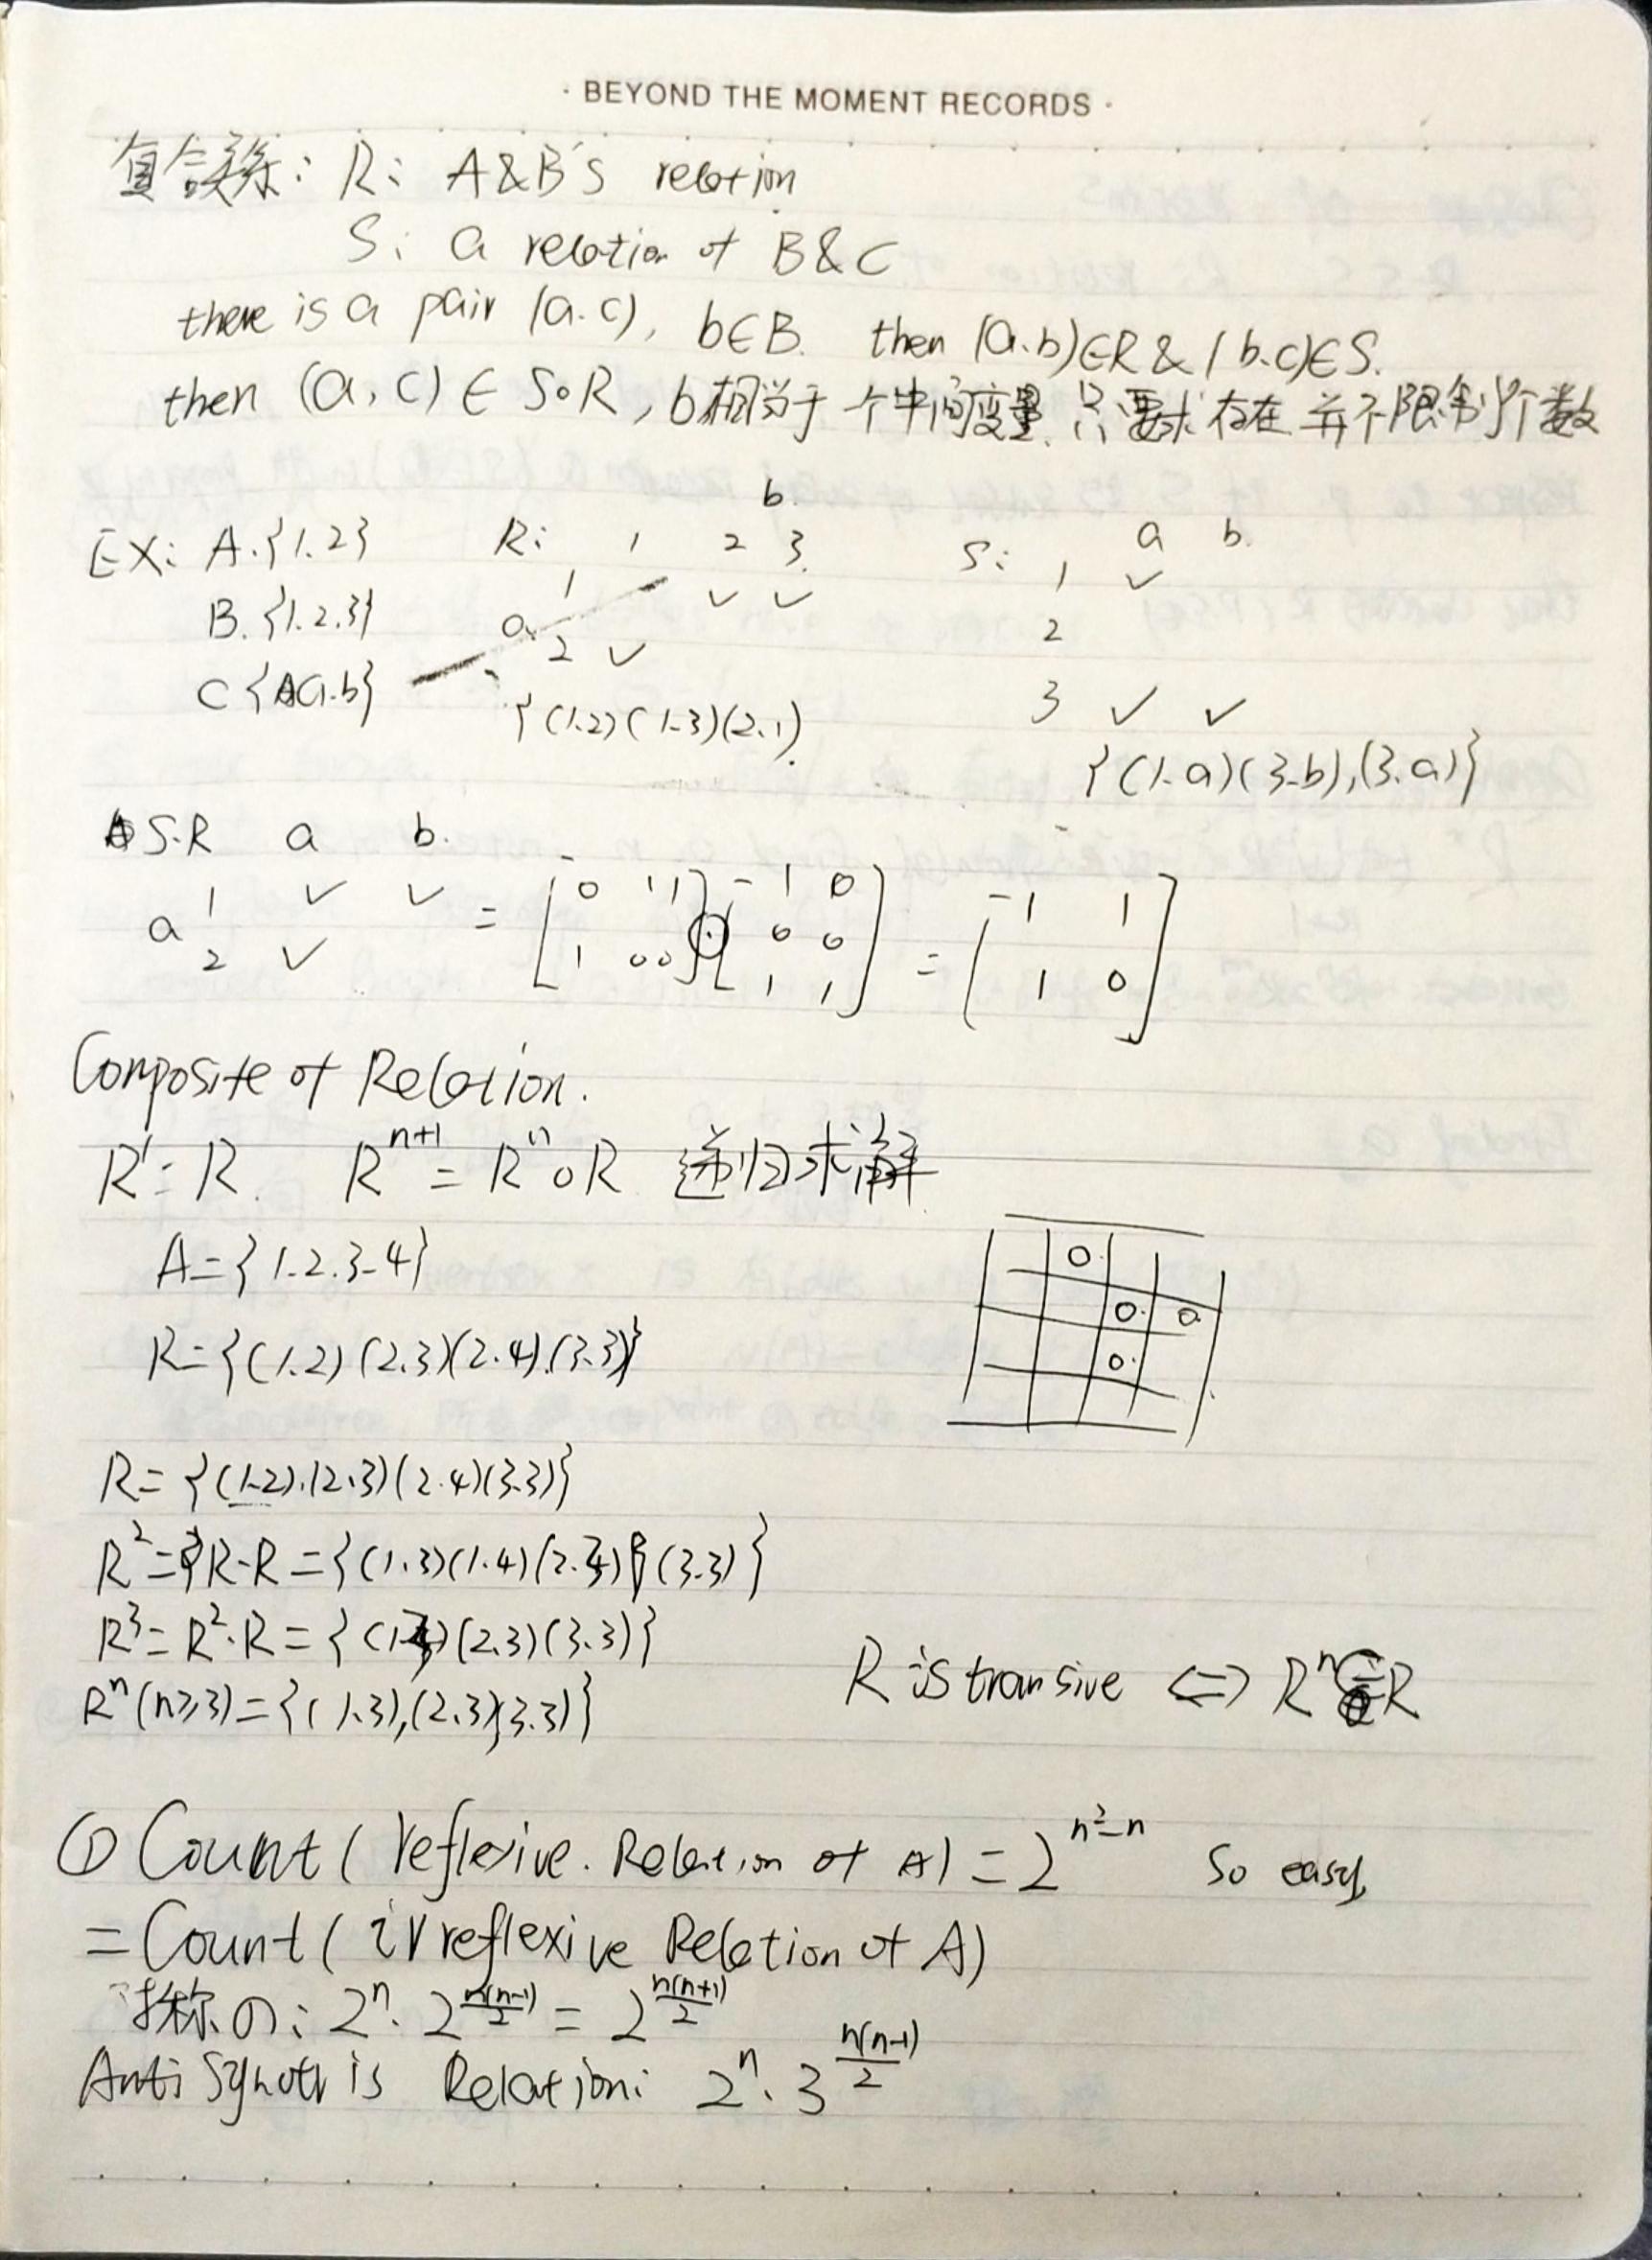 · BEYOND THE MOMENT RECORDS ·
复合关系: R: A&B's relation
S: a relation of B&C
there is a pair (a.c), b∈B. then (a.b)∈R & (b.c)∈S.
then (a,c) ∈ S∘R, b相当于个中间变量.只要求存在并不限制个数
b.
EX: A.{1.2} R: 1 2 3. S: a b.
1 ✓ ✓ 1 ✓
B.{1.2.3} a 2 ✓ 2
C{a.b} 3 ✓ ✓
{(1.2)(1-3)(2.1)
{(1-a)(3-b),(3.a)}
S·R a b.
a 1 ✓ ✓ = [0 1 1 / 1 0 0] ⊙ [1 0 / 0 0 / 1 1] = [1 1 / 1 0]
2 ✓
Composite of Relation.
R¹=R. Rⁿ⁺¹=Rⁿ∘R 递归求解
A={1-2.3-4}
R={(1.2)(2.3)(2.4).(3.3)}
0 0 0 0
R={(1-2).(2.3)(2.4)(3.3)}
R²=R·R={(1.3)(1.4)(2.3)(3.3)}
R³=R²·R={(1.3)(2.3)(3.3)}
Rⁿ(n≥3)={(1.3),(2.3)(3.3)}
R is transive ⇔ Rⁿ⊆R
① Count(reflexive. Relation of A)=2^{n²-n} So easy
=Count(irreflexive Relation of A)
对称の: 2ⁿ·2^{n(n-1)/2}=2^{n(n+1)/2}
Anti is Relation: 2ⁿ·3^{n(n-1)/2}